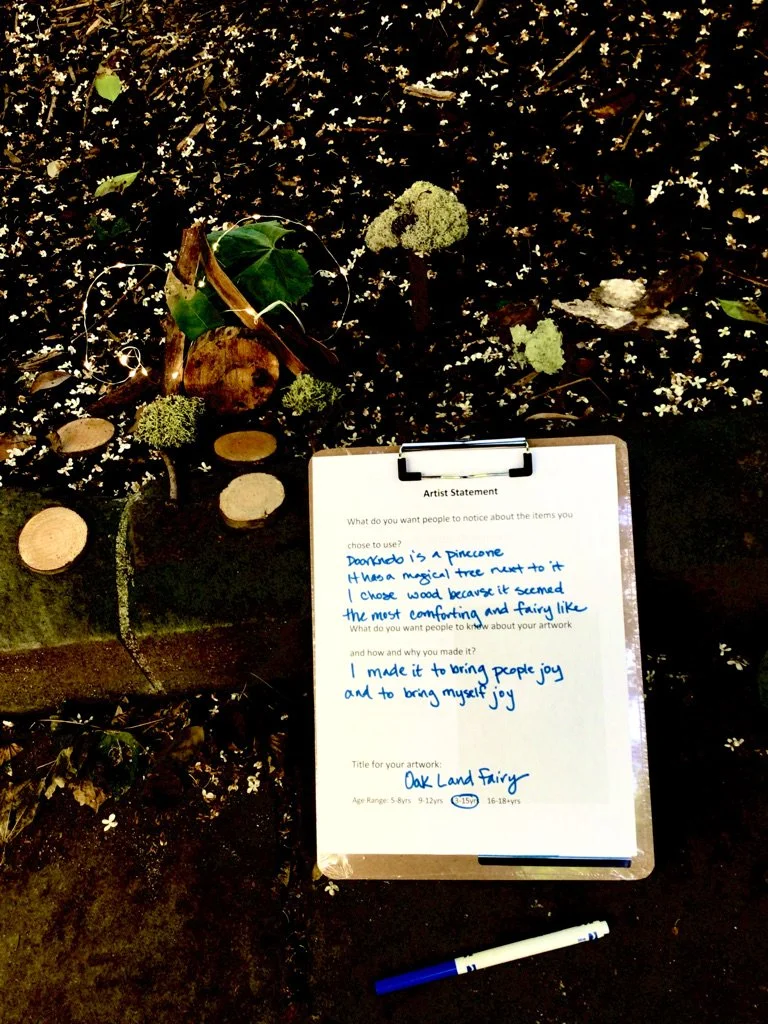 Artist Statement
What do you want people to notice about the items you
chose to use?
Doorknob is a pinecone
It has a magical tree next to it
I chose wood because it seemed
the most comforting and fairy like
What do you want people to know about your artwork
and how and why you made it?
I made it to bring people joy
and to bring myself joy
Title for your artwork:
Oak Land Fairy
Age Range: 5-8yrs 9-12yrs 13-15yrs 16-18+yrs